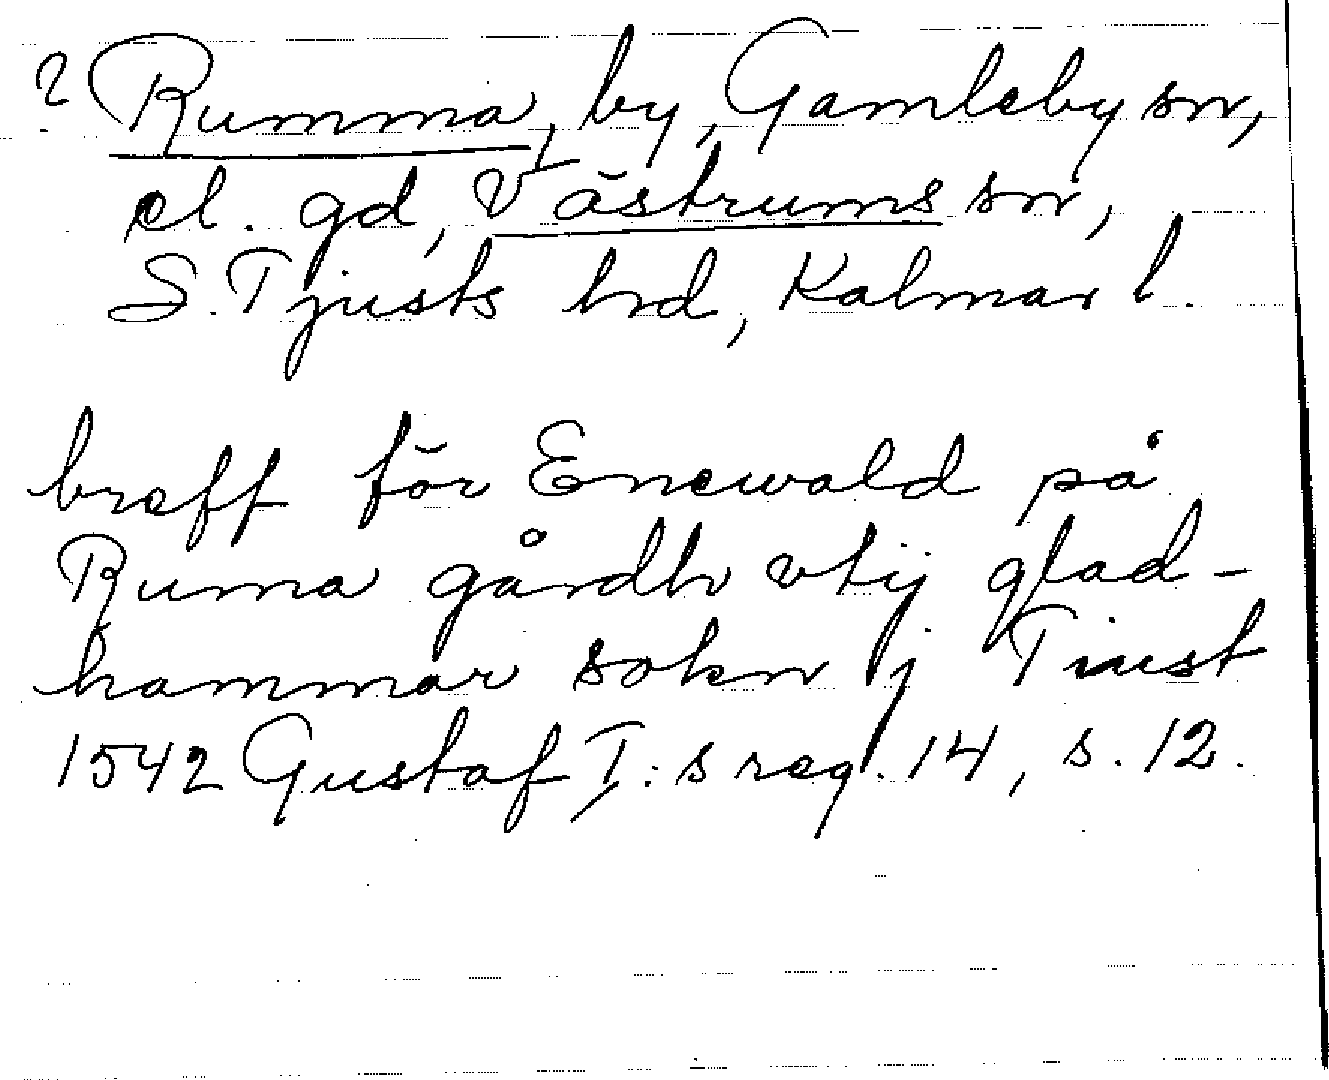 ? Rumma, by, Gamleby sn,
el. gd, Västrums sn,
S. Tjusts hd, Kalmar l.
breff för Enewald på
Ruma gårdh vtij glad-
hammar sokn j Tiust
1542 Gustaf I:s reg. 14, s. 12.